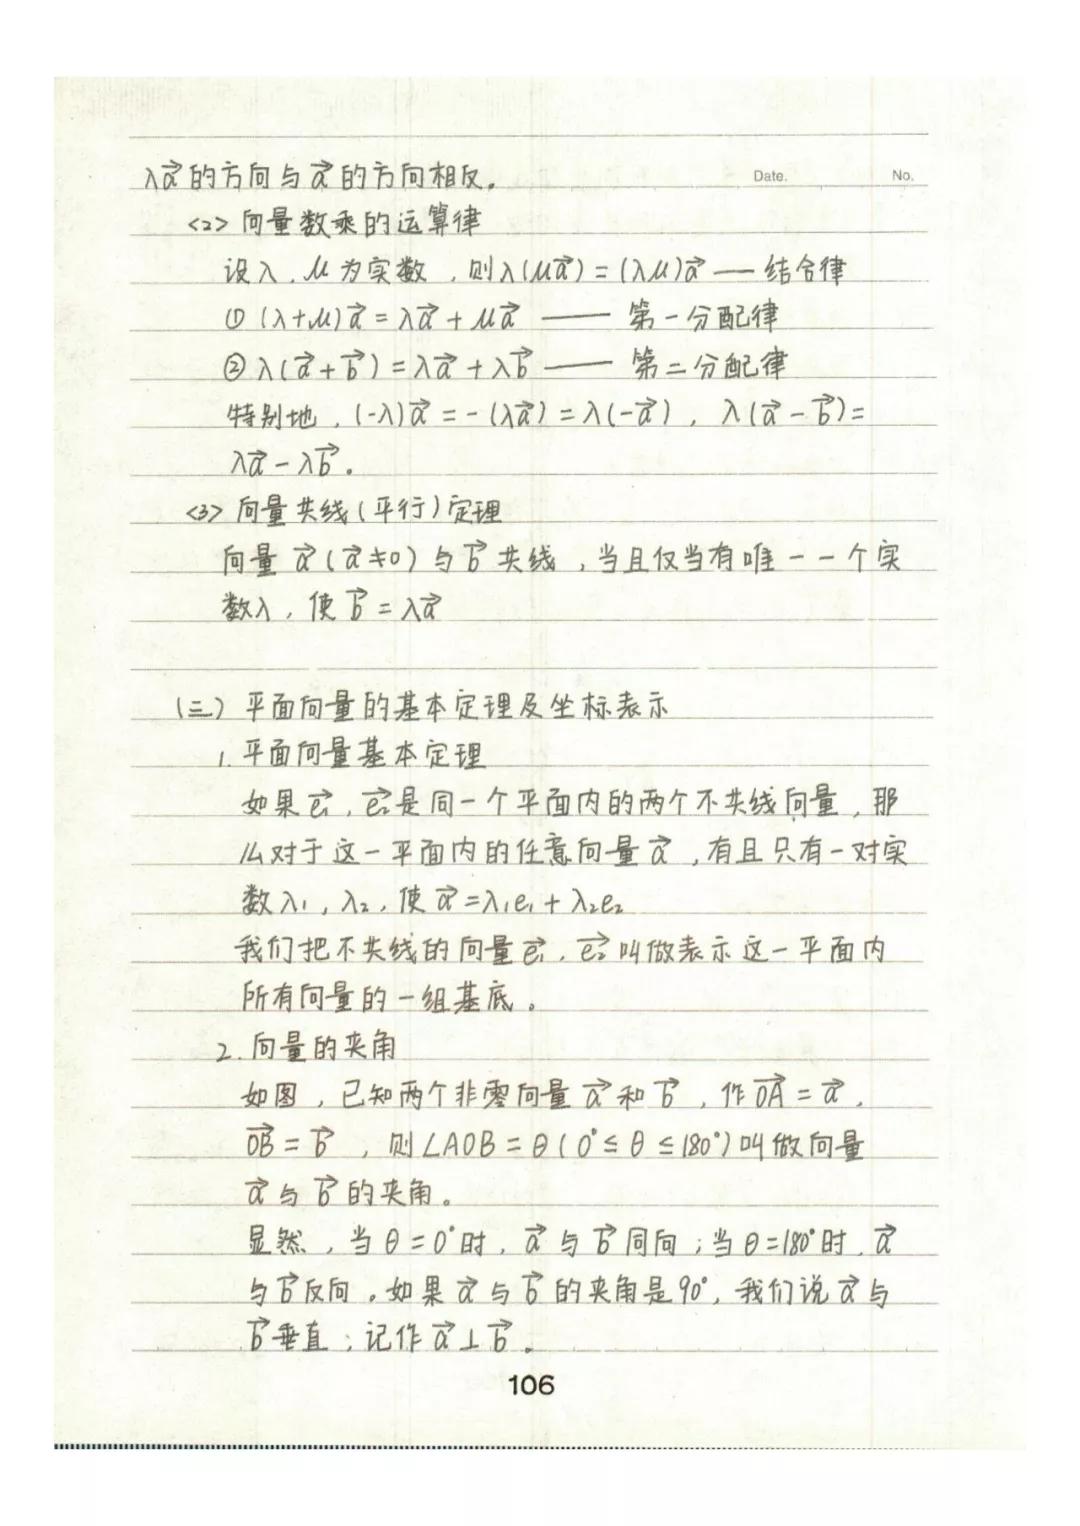 λa⃗的方向与a⃗的方向相反。
Date.
No.
<2> 向量数乘的运算律
设λ,μ为实数,则λ(μa⃗)=(λμ)a⃗ — 结合律
① (λ+μ)a⃗=λa⃗+μa⃗ —— 第一分配律
② λ(a⃗+b⃗)=λa⃗+λb⃗ —— 第二分配律
特别地,(-λ)a⃗=-(λa⃗)=λ(-a⃗),λ(a⃗-b⃗)=
λa⃗-λb⃗。
<3> 向量共线(平行)定理
向量a⃗(a⃗≠0)与b⃗共线,当且仅当有唯一一个实
数λ,使b⃗=λa⃗
(三) 平面向量的基本定理及坐标表示
1. 平面向量基本定理
如果e⃗₁,e⃗₂是同一个平面内的两个不共线向量,那
么对于这一平面内的任意向量a⃗,有且只有一对实
数λ₁,λ₂,使a⃗=λ₁e₁+λ₂e₂
我们把不共线的向量e⃗₁,e⃗₂叫做表示这一平面内
所有向量的一组基底。
2. 向量的夹角
如图,已知两个非零向量a⃗和b⃗,作OA⃗=a⃗,
OB⃗=b⃗,则∠AOB=θ(0°≤θ≤180°)叫做向量
a⃗与b⃗的夹角。
显然,当θ=0°时,a⃗与b⃗同向;当θ=180°时,a⃗
与b⃗反向。如果a⃗与b⃗的夹角是90°,我们说a⃗与
b⃗垂直;记作a⃗⊥b⃗。
106